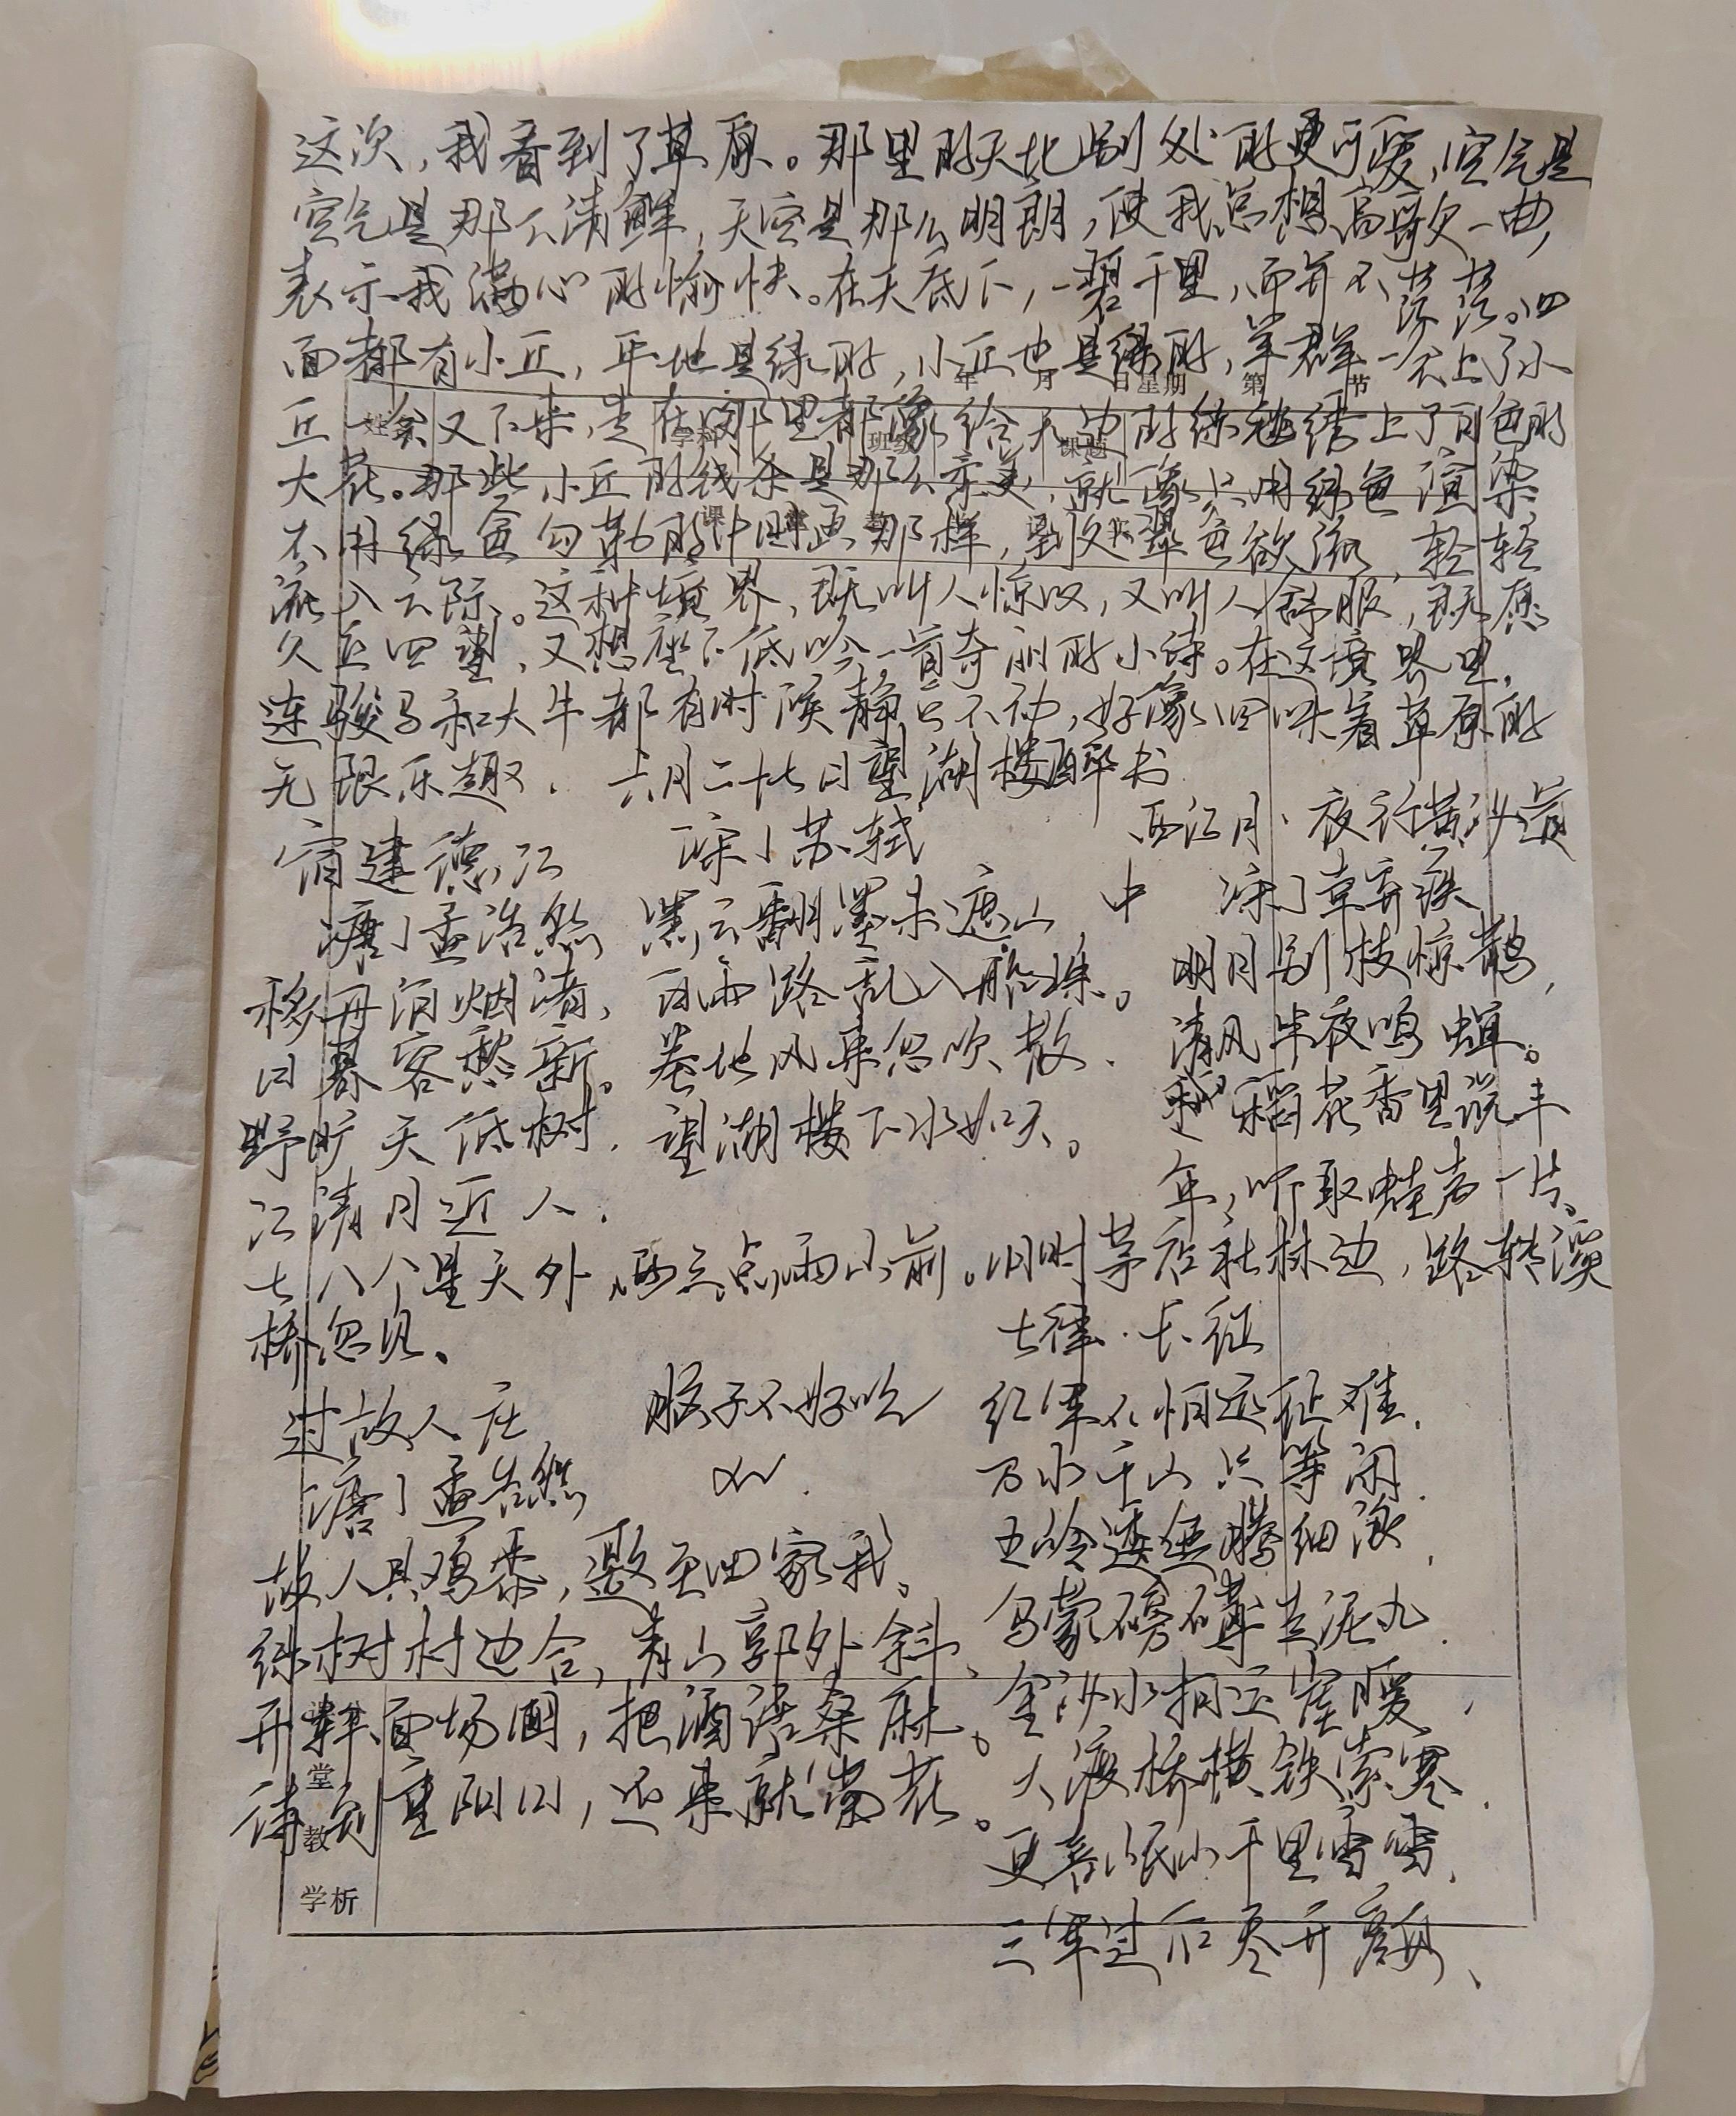 这次,我看到了草原。那里的天比别处的更可爱,空气是
空气是那么清鲜,天空是那么明朗,使我总想高歌一曲,
表示我满心的愉快。在天底下,一碧千里,而并不茫茫。四
面都有小丘,平地是绿的,小丘也是绿的,羊群一会上了小
年 月 日 星期 第 节
丘一会又下来,走在哪里都像给无边的绿毯绣上了白色的
姓名 学科 班级 课题
大花。那些小丘的线条是那么柔美,就像只用绿色渲染
不用绿色勾勒的中国画那样,到处翠色欲流,轻轻
流入云际。这种境界,既叫人惊叹,又叫人舒服,既愿
久立四望,又想坐下低吟一首奇丽的小诗。在这境界里,
连骏马和大牛都有时候静立不动,好像回味着草原的
无限乐趣. 六月二十七日望湖楼醉书
西江月·夜行黄沙道
宿建德江 [宋]苏轼
中 [宋]辛弃疾
[唐]孟浩然 黑云翻墨未遮山,
明月别枝惊鹊,
移舟泊烟渚, 白雨跳乱入船珠。
清风半夜鸣蝉。
日暮客愁新。 卷地风来忽吹散.
稻花香里说丰
野旷天低树. 望湖楼下水如天。
年,听取蛙声一片。
江清月近人.
七八个星天外,两三点雨山前。旧时茅店社林边,路转溪
桥忽见、
七律·长征
过故人庄 脑子不好吃
红军不怕远征难.
[唐]孟浩然
万水千山只等闲.
五岭逶迤腾细浪,
故人具鸡黍,邀至田家我。
乌蒙磅礴走泥丸.
绿树村边合,青山郭外斜、
金沙水拍云崖暖,
开轩面场圃,把酒话桑麻。
大渡桥横铁索寒.
待到重阳日,还来就菊花。
更喜岷山千里雪雪,
三军过后尽开颜、
堂
教
学析